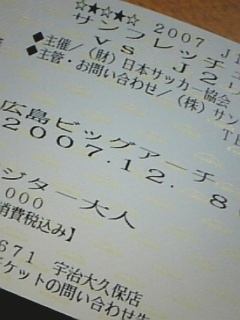 ☆★☆★☆ 2007 J
サンフレッチェ
VS J2
◆主催/(財)日本サッカー協会
◆主管・お問い合わせ/(株)サン
TE
広島ビッグアーチ
2007.12. 8
ジター大人
000
消費税込み】
671 宇治大久保店
ケットの問い合わせ先